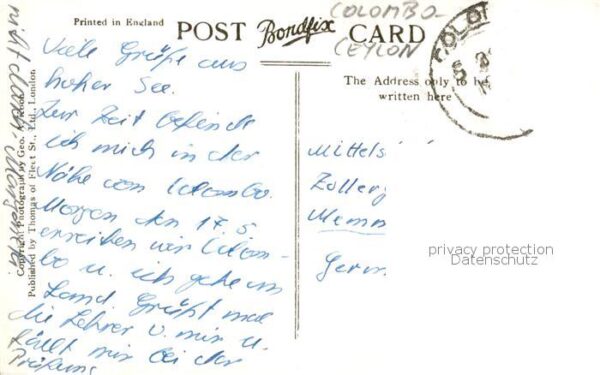 Printed in England
POST Bondfix CARD
COLOMBO-
CEYLON
COLO
The Address only to be
written here
Viele Grüße aus
hoher See.
Zur Zeit befinde
ich mich in der
Nähe von Colombo.
Morgen den 17.5.
erreichen wir Colom-
bo u. ich gehe an
Land. Grüßt mal
die Lehrer v. mir u.
fallt mir bei der
Prüfung
nicht durch.
Copyright Photograph by Geo.
Published by Thomas of Fleet St., Ltd., London.
Mittels
Zoller
Memm
Germ
privacy protection
Datenschutz